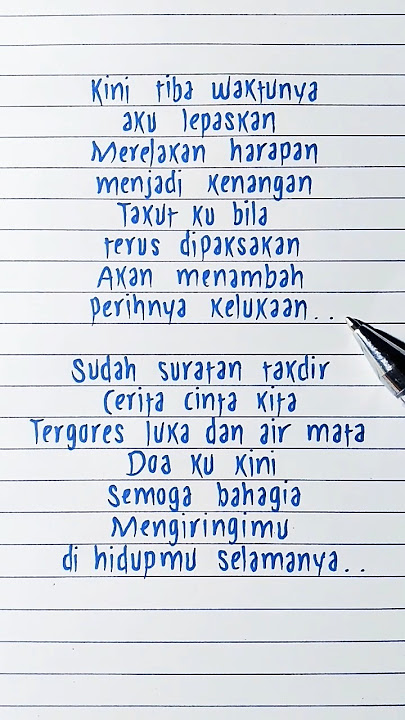 Kini tiba waktunya
aku lepaskan
Merelakan harapan
menjadi kenangan
Takut ku bila
terus dipaksakan
Akan menambah
perihnya kelukaan..
Sudah suratan takdir
Cerita cinta kita
Tergores luka dan air mata
Doa ku kini
Semoga bahagia
Mengiringimu
di hidupmu selamanya..